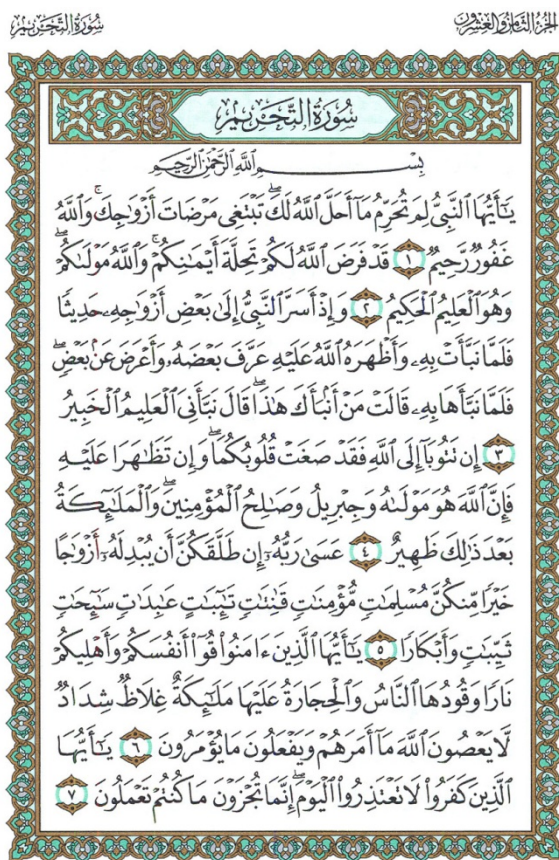 سُورَةُ التَّحْرِيمِ
الجُزْءُ الثَّامِنُ وَالْعِشْرُونَ
سُورَةُ التَّحْرِيمِ
بِسْمِ اللَّهِ الرَّحْمَٰنِ الرَّحِيمِ
يَٰٓأَيُّهَا ٱلنَّبِيُّ لِمَ تُحَرِّمُ مَآ أَحَلَّ ٱللَّهُ لَكَۖ تَبْتَغِي مَرْضَاتَ أَزْوَٰجِكَۚ وَٱللَّهُ
غَفُورٌ رَّحِيمٌ ١ قَدْ فَرَضَ ٱللَّهُ لَكُمْ تَحِلَّةَ أَيْمَٰنِكُمْۚ وَٱللَّهُ مَوْلَىٰكُمْۖ
وَهُوَ ٱلْعَلِيمُ ٱلْحَكِيمُ ٢ وَإِذْ أَسَرَّ ٱلنَّبِيُّ إِلَىٰ بَعْضِ أَزْوَٰجِهِۦ حَدِيثًا
فَلَمَّا نَبَّأَتْ بِهِۦ وَأَظْهَرَهُ ٱللَّهُ عَلَيْهِ عَرَّفَ بَعْضَهُۥ وَأَعْرَضَ عَنۢ بَعْضٍۖ
فَلَمَّا نَبَّأَهَا بِهِۦ قَالَتْ مَنْ أَنۢبَأَكَ هَٰذَاۖ قَالَ نَبَّأَنِيَ ٱلْعَلِيمُ ٱلْخَبِيرُ
٣ إِن تَتُوبَآ إِلَى ٱللَّهِ فَقَدْ صَغَتْ قُلُوبُكُمَاۖ وَإِن تَظَٰهَرَا عَلَيْهِ
فَإِنَّ ٱللَّهَ هُوَ مَوْلَىٰهُ وَجِبْرِيلُ وَصَٰلِحُ ٱلْمُؤْمِنِينَۖ وَٱلْمَلَٰٓئِكَةُ
بَعْدَ ذَٰلِكَ ظَهِيرٌ ٤ عَسَىٰ رَبُّهُۥٓ إِن طَلَّقَكُنَّ أَن يُبْدِلَهُۥٓ أَزْوَٰجًا
خَيْرًا مِّنكُنَّ مُسْلِمَٰتٍ مُّؤْمِنَٰتٍ قَٰنِتَٰتٍ تَٰٓئِبَٰتٍ عَٰبِدَٰتٍ سَٰٓئِحَٰتٍ
ثَيِّبَٰتٍ وَأَبْكَارًا ٥ يَٰٓأَيُّهَا ٱلَّذِينَ ءَامَنُوا۟ قُوٓا۟ أَنفُسَكُمْ وَأَهْلِيكُمْ
نَارًا وَقُودُهَا ٱلنَّاسُ وَٱلْحِجَارَةُ عَلَيْهَا مَلَٰٓئِكَةٌ غِلَاظٌ شِدَادٌ
لَّا يَعْصُونَ ٱللَّهَ مَآ أَمَرَهُمْ وَيَفْعَلُونَ مَا يُؤْمَرُونَ ٦ يَٰٓأَيُّهَا
ٱلَّذِينَ كَفَرُوا۟ لَا تَعْتَذِرُوا۟ ٱلْيَوْمَۖ إِنَّمَا تُجْزَوْنَ مَا كُنتُمْ تَعْمَلُونَ ٧